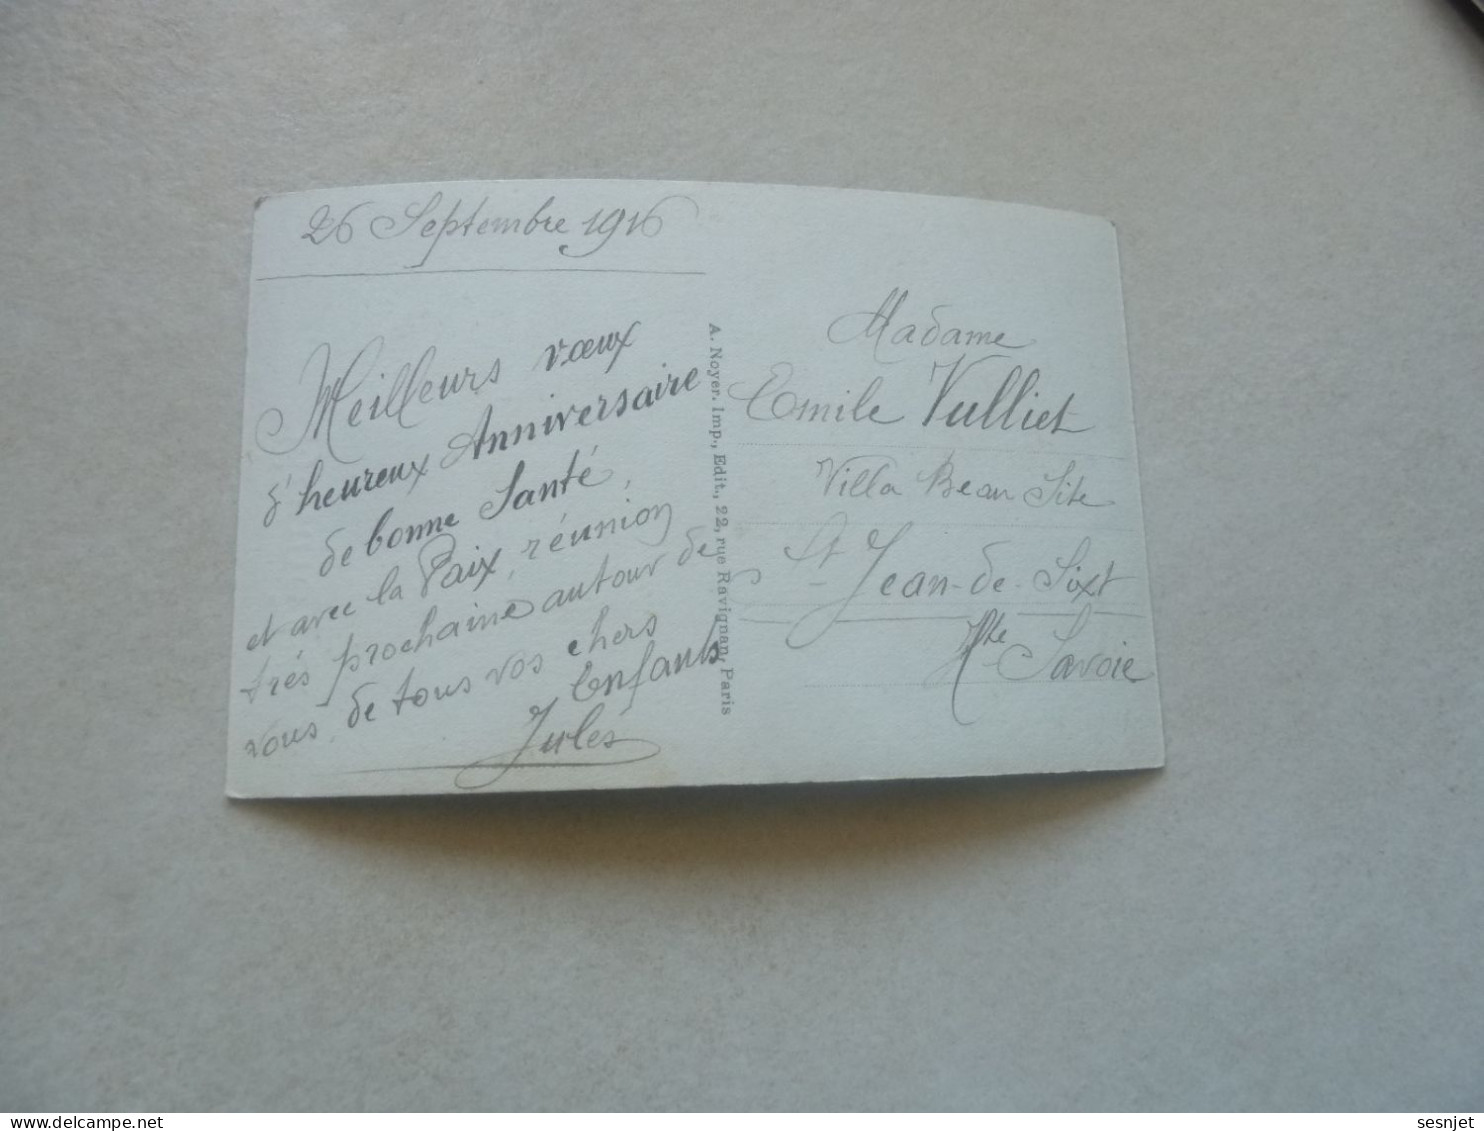 26 Septembre 1916
Meilleurs vœux
d'heureux Anniversaire
de bonne Santé,
et avec la Paix, réunion
très prochaine autour de
vous de tous vos chers
Enfants
Jules
A. Noyer. Imp., Edit., 22, rue Ravignan, Paris
Madame
Emile Vulliet
Villa Beau Site
St Jean-de-Sixt
Hte Savoie
delcampe.net
sesnjet